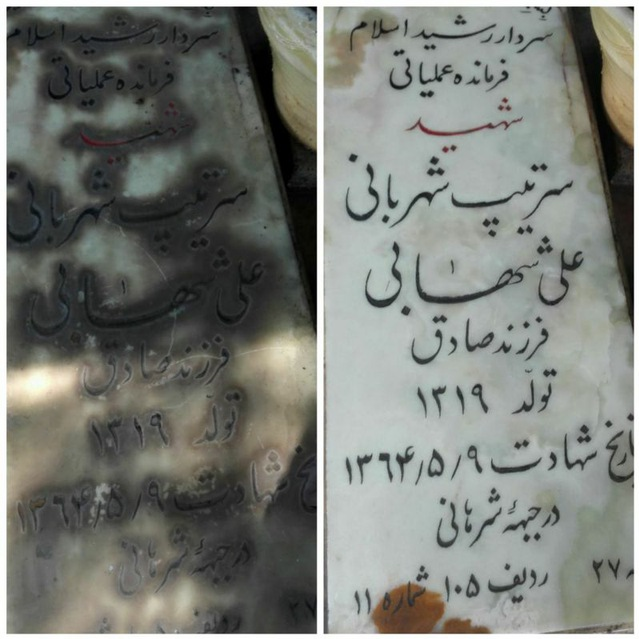 سردار رشید اسلام
فرمانده عملیاتی
شهید
سرتیپ شهربانی
علی شهابی
فرزند صادق
تولّد ۱۳۱۹
تاریخ شهادت ۱۳۶۴/۵/۹
در جبههٔ شرهانی
۲۷ ردیف
سردار رشید اسلام
فرمانده عملیاتی
شهید
سرتیپ شهربانی
علی شهابی
فرزند صادق
تولّد ۱۳۱۹
تاریخ شهادت ۱۳۶۴/۵/۹
در جبههٔ شرهانی
۲۷ ردیف ۱۰۵ شماره ۱۱